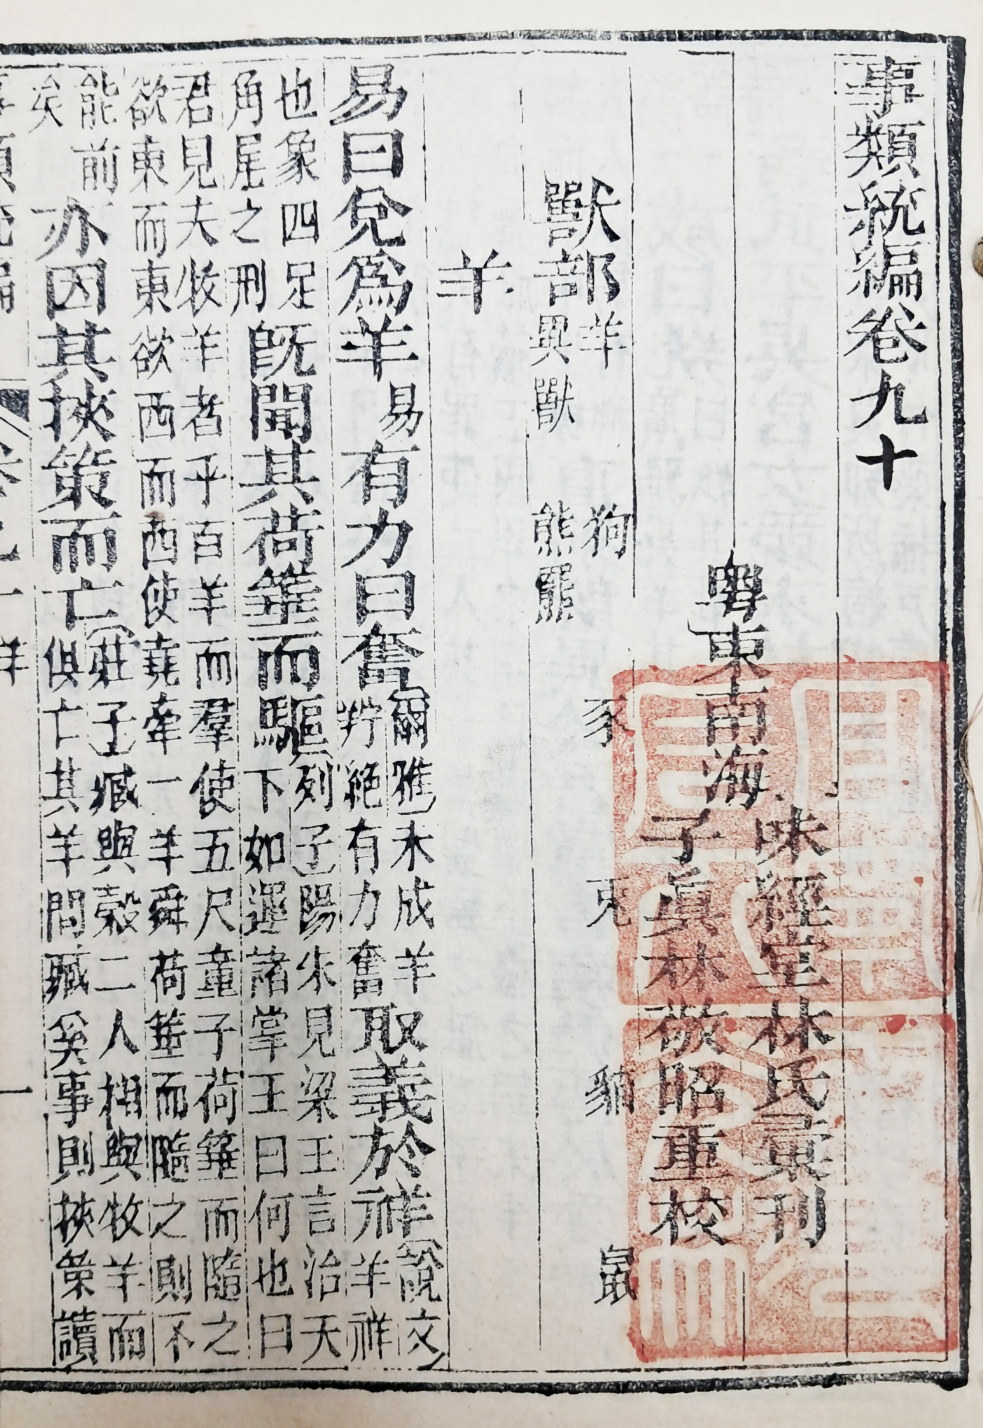 事類統編卷九十
粵東南海
味經堂林氏彙刊
子眞林敬昭重校
獸部
羊 狗 豕 兎 貓 鼠
異獸 熊羆
羊
易曰兌爲羊易有力曰奮爾雅未成羊羜絕有力奮取義於祥說文羊祥
也象四足角尾之刑旣聞其荷箠而驅列子陽朱見梁王言治天下如運諸掌王曰何也曰
君見夫牧羊者乎百羊而羣使五尺童子荷箠而隨之欲東而東欲西而西使堯牽一羊舜荷箠而隨之則不
能前矣亦因其挾策而亡莊子臧與穀二人相與牧羊而俱亡其羊問臧奚事則挾策讀